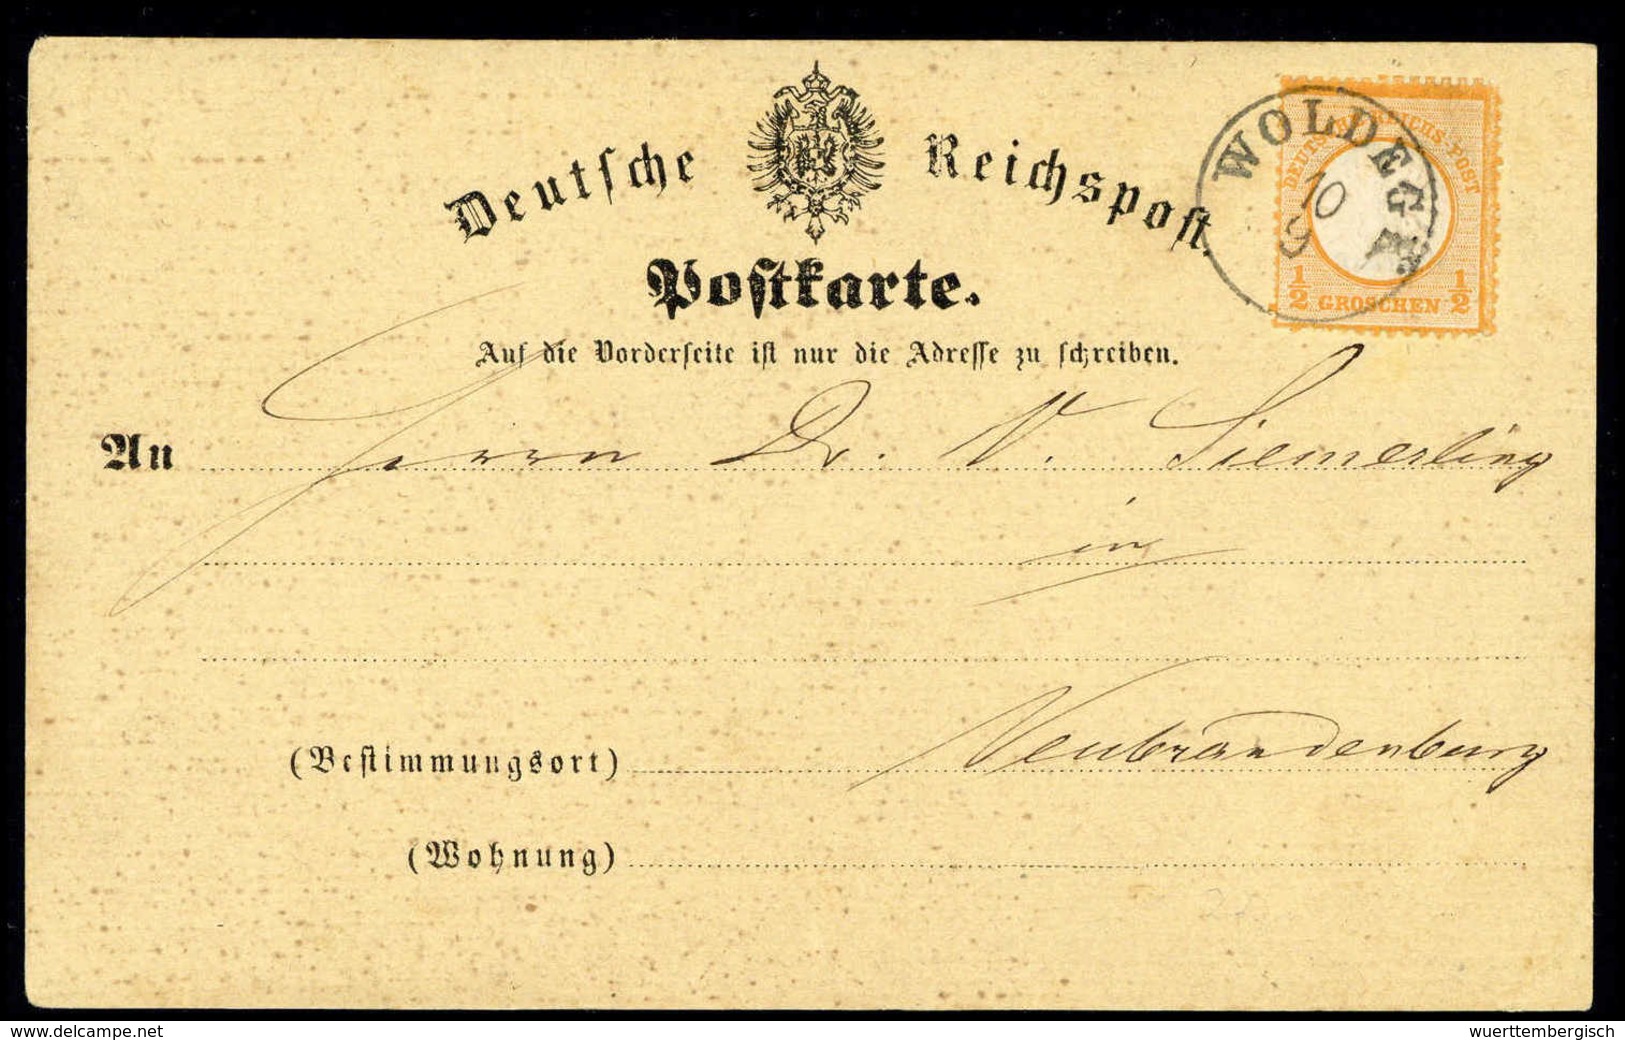 Deutsche Reichspost.
Postkarte.
Auf die Vorderseite ist nur die Adresse zu schreiben.
An Herrn Dr. V. Siemerling
in
(Bestimmungsort) Neubrandenburg
(Wohnung)
WOLDEGK
10
9
DEUTSCHE REICHS-POST
1/2 GROSCHEN 1/2
www.delcampe.net
wuerttembergisch